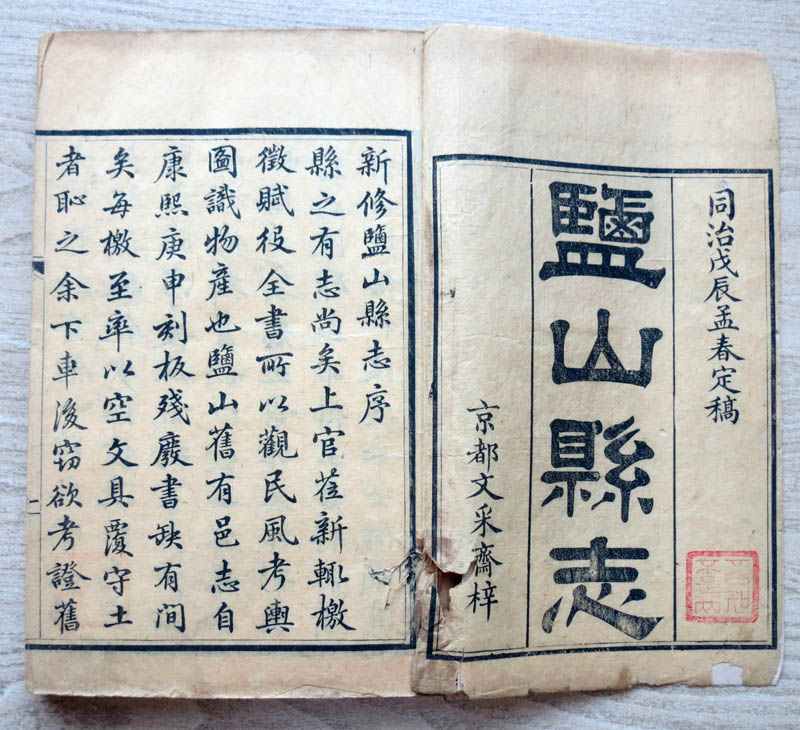 同治戊辰孟春定稿
鹽山縣志
京都文采齋梓
新修鹽山縣志序
縣之有志尚矣上官莅新輒檄
徵賦役全書所以觀民風考輿
圖識物產也鹽山舊有邑志自
康熙庚申刻板殘廢書缺有間
矣每檄至率以空文具覆守土
者恥之余下車後竊欲考證舊
二